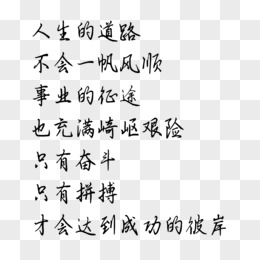 人生的道路
不会一帆风顺
事业的征途
也充满崎岖艰险
只有奋斗
只有拼搏
才会达到成功的彼岸